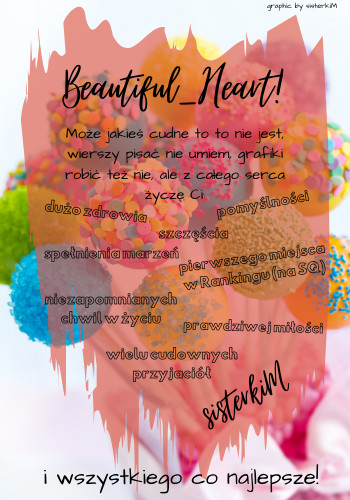 graphic by sisterkiM
Beautiful_Heart!
Może jakieś cudne to to nie jest,
wierszy pisać nie umiem, grafiki
robić też nie, ale z całego serca
życzę Ci:
dużo zdrowia
pomyślności
szczęścia
spełnienia marzeń
pierwszego miejsca
w Rankingu (na SQ)
niezapomnianych
chwil w życiu
prawdziwej miłości
wielu cudownych
przyjaciół
sisterkiM
i wszystkiego co najlepsze!